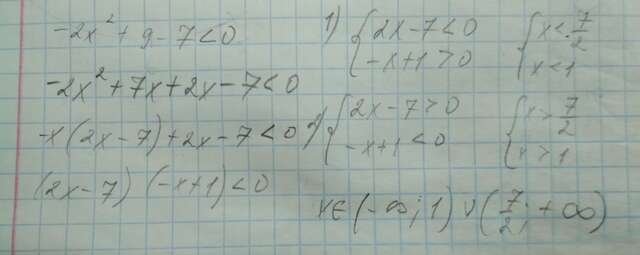 -2x² + 9 - 7 < 0
-2x² + 7x + 2x - 7 < 0
-x(2x - 7) + 2x - 7 < 0
(2x - 7) (-x + 1) < 0
1) { 2x - 7 < 0
-x + 1 > 0
{ x < 7/2
x < 1
2) { 2x - 7 > 0
-x + 1 < 0
{ x > 7/2
x > 1
x ∈ (-∞; 1) ∪ (7/2; +∞)